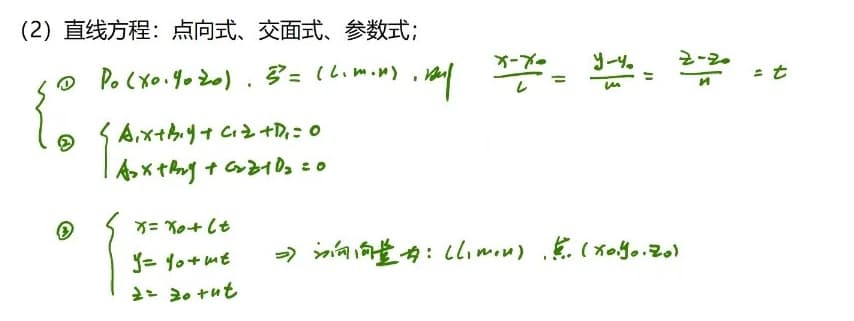 （2）直线方程：点向式、交面式、参数式；
① P₀(x₀.y₀ z₀). s⃗=(l.m.n),则 (x-x₀)/l = (y-y₀)/m = (z-z₀)/n = t
② { A₁x+B₁y+C₁z+D₁=0
A₂x+B₂y+C₂z+D₂=0
③ { x=x₀+lt
y=y₀+mt ⇒ 方向向量为:(l,m.n).点.(x₀.y₀.z₀)
z=z₀+nt